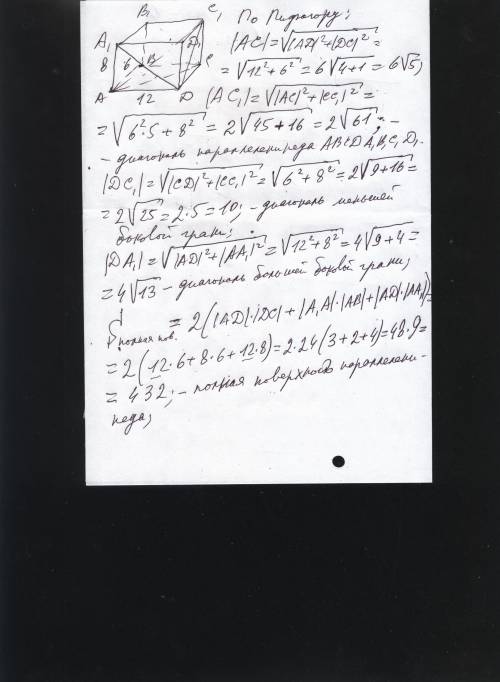 B₁ C₁ По Пифагору:
A₁ D₁ |AC|=√|AD|²+|DC|²=
8 6 B C =√12²+6²=6√4+1=6√5;
A 12 D |AC₁|=√|AC|²+|CC₁|²=
=√6²·5+8²=2√45+16=2√61; -
- диагональ параллелепипеда ABCDA₁B₁C₁D₁.
|DC₁|=√|CD|²+|CC₁|²=√6²+8²=2√9+16=
=2√25=2·5=10; - диагональ меньшей
боковой грани;
|DA₁|=√|AD|²+|AA₁|²=√12²+8²=4√9+4=
=4√13 - диагональ большей боковой грани;
S полная пов. = 2(|AD|·|DC|+|A₁A|·|AB|+|AD|·|AA₁|)=
=2(12·6+8·6+12·8)=2·24(3+2+4)=48·9=
=432; - полная поверхность параллелепи-
педа;